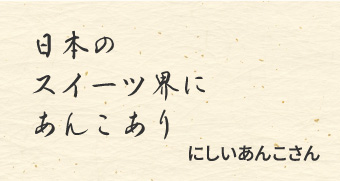 日本の
スイーツ界に
あんこあり
にしいあんこさん